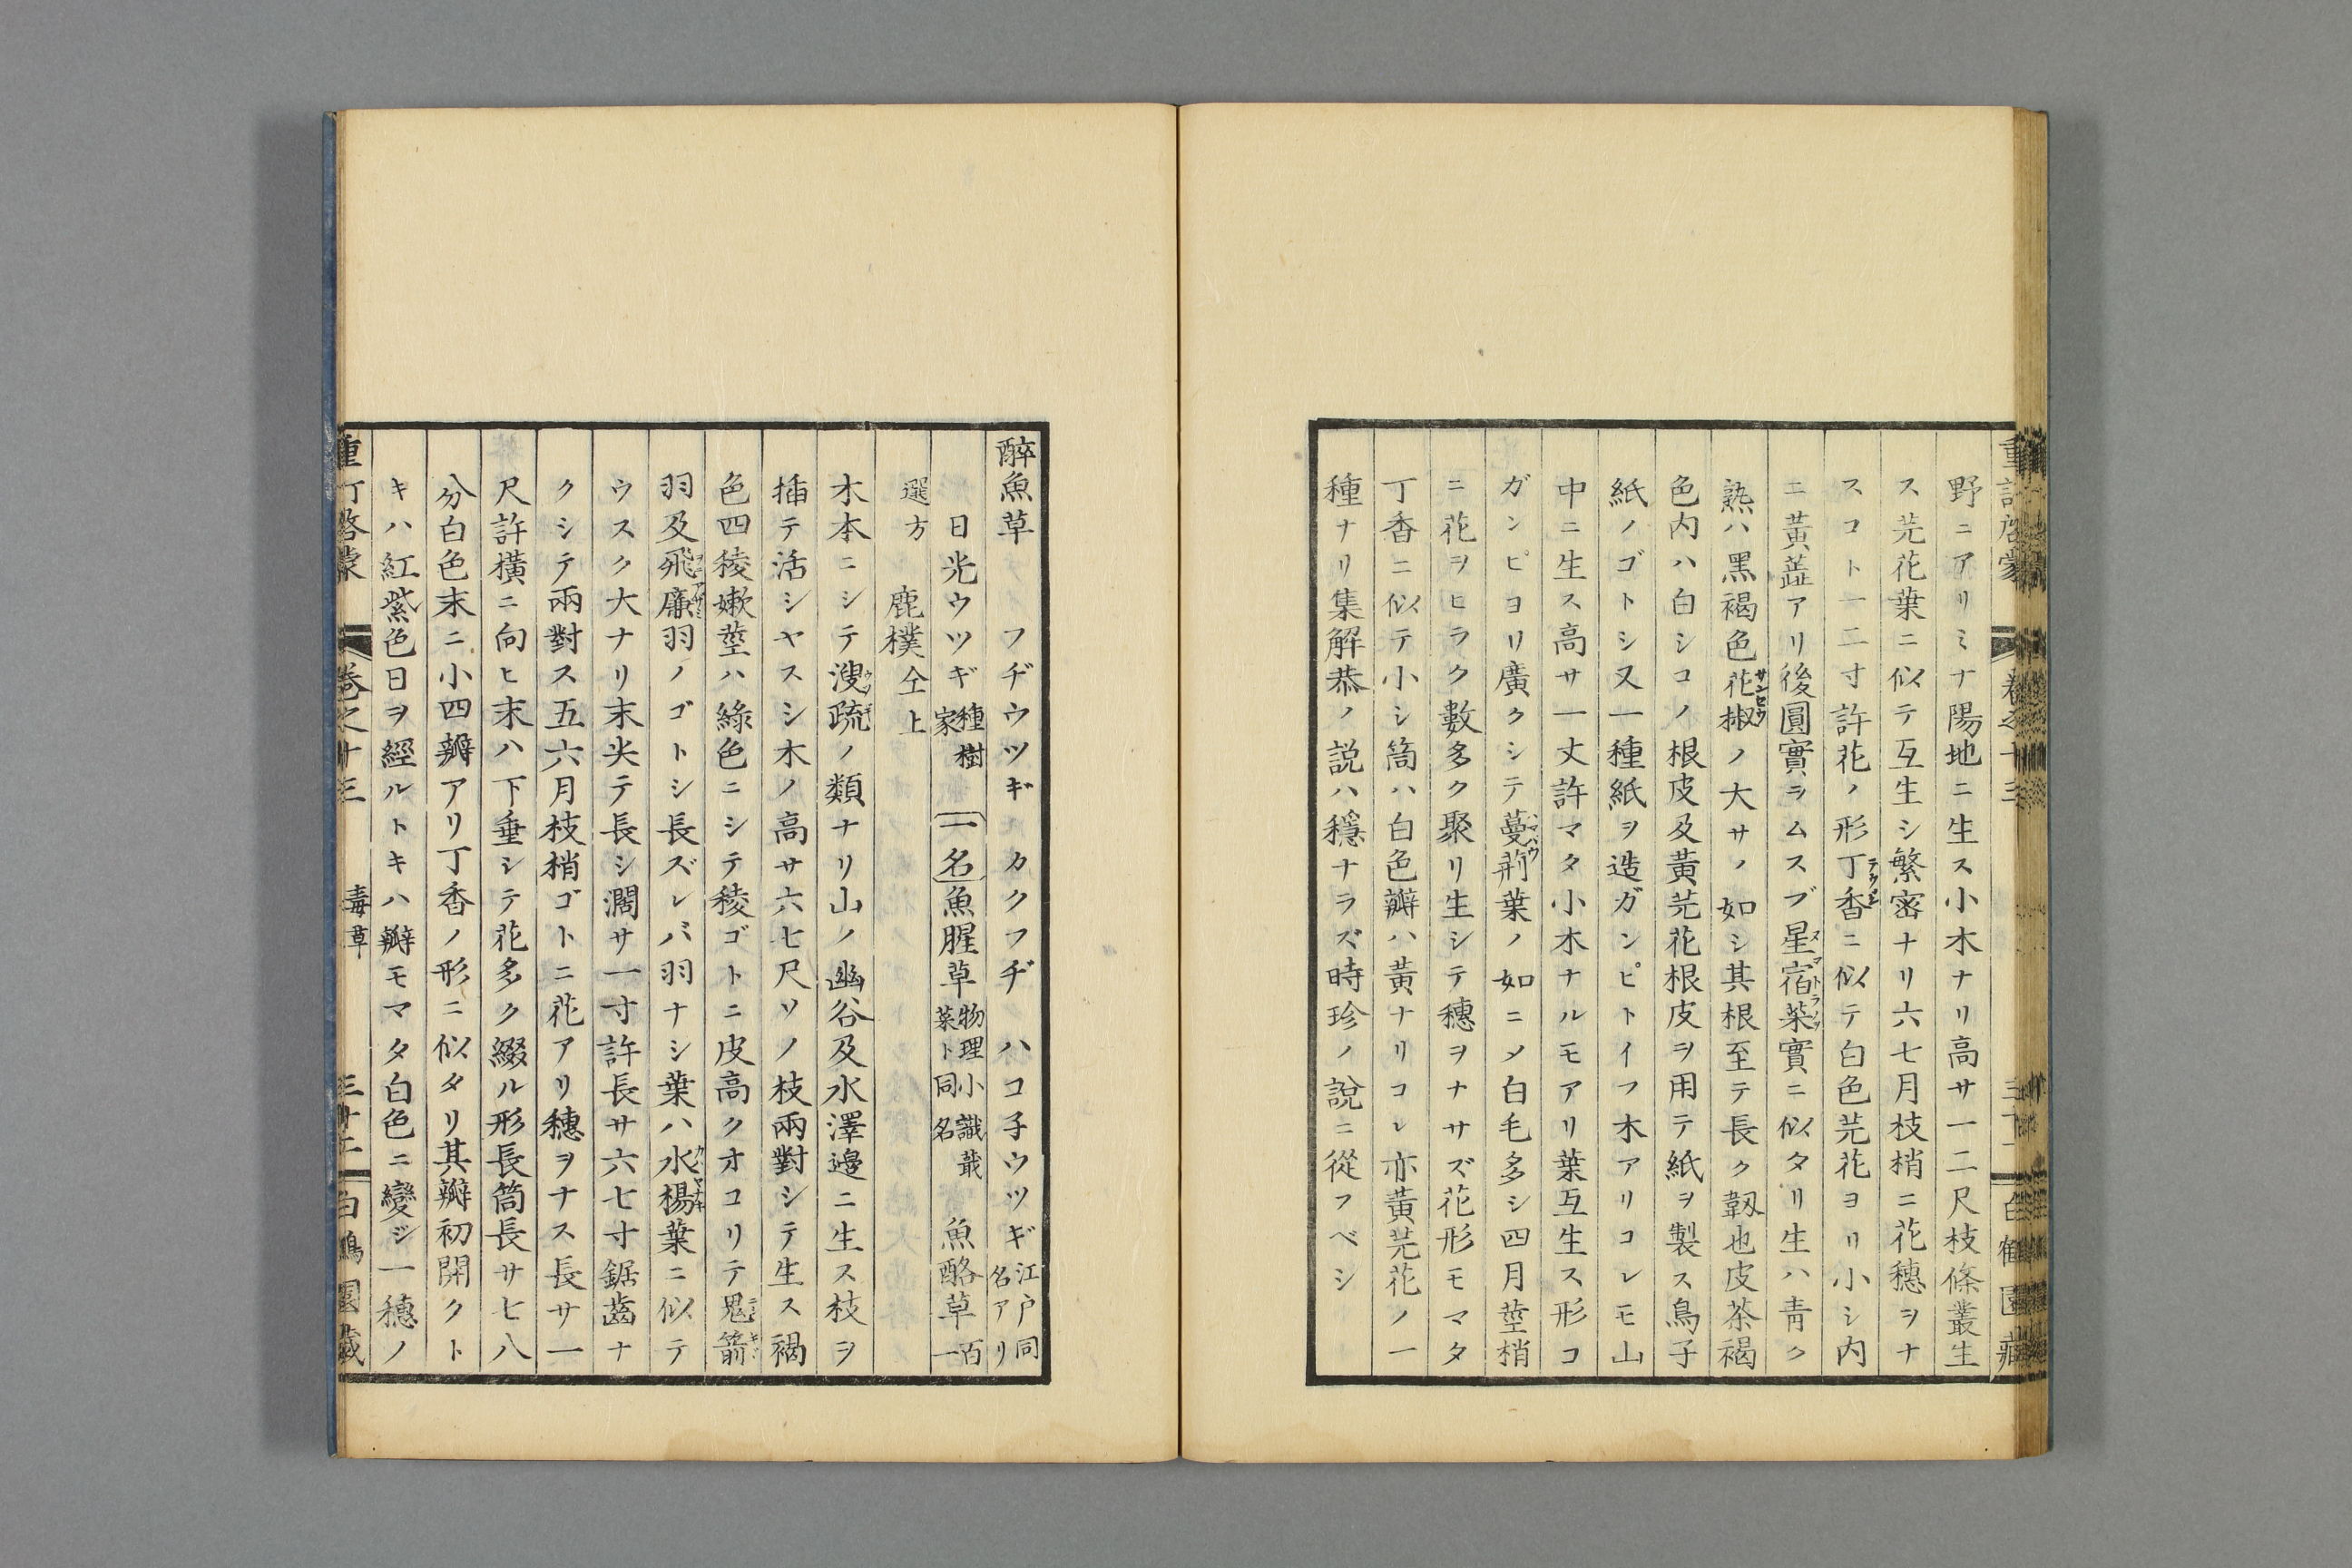 野ニアリミナ陽地ニ生ス小木ナリ高サ一二尺枝條叢生
ス芫花葉ニ似テ互生シ繁密ナリ六七月枝梢ニ花穗ヲナ
スコト一二寸許花ノ形丁香ニ似テ白色芫花ヨリ小シ内
ニ黃蘂アリ後圓實ヲムスブ星宿菜實ニ似タリ生ハ青ク
熟ハ黑褐色花椒ノ大サノ如シ其根至テ長ク韌也皮茶褐
色内ハ白シコノ根皮及黃芫花根皮ヲ用テ紙ヲ製ス鳥子
紙ノゴトシ又一種紙ヲ造ガンピトイフ木アリコレモ山
中ニ生ス高サ一丈許マタ小木ナルモアリ葉互生ス形コ
ガンピヨリ廣クシテ蔓荊葉ノ如ニメ白毛多シ四月莖梢
ニ花ヲヒラク數多ク聚リ生シテ穗ヲナサズ花形モマタ
丁香ニ似テ小シ筒ハ白色瓣ハ黃ナリコレ亦黃芫花ノ一
種ナリ集解恭ノ説ハ穩ナラズ時珍ノ説ニ從フベシ
醉魚草　フヂウツギ　カクフヂ　ハコ子ウツギ江戸同名アリ
日光ウツギ種樹家　一名魚腥草物理小識蕺菜ト同名　魚酪草百一
選方　鹿樸仝上
木本ニシテ溲疏ノ類ナリ山ノ幽谷及水澤邊ニ生ス枝ヲ
插テ活シヤスシ木ノ高サ六七尺ソノ枝兩對シテ生ス褐
色四稜嫩莖ハ綠色ニシテ稜ゴトニ皮高クオコリテ鬼箭
羽及飛廉羽ノゴトシ長ズレバ羽ナシ葉ハ水楊葉ニ似テ
ウスク大ナリ末尖テ長シ濶サ一寸許長サ六七寸鋸齒ナ
クシテ兩對ス五六月枝梢ゴトニ花アリ穗ヲナス長サ一
尺許橫ニ向ヒ末ハ下垂シテ花多ク綴ル形長筒長サ七八
分白色末ニ小四瓣アリ丁香ノ形ニ似タリ其瓣初開クト
キハ紅紫色日ヲ經ルトキハ瓣モマタ白色ニ變ジ一穗ノ
重訂啓蒙　卷之十三　毒草　三十二　白鶴園藏